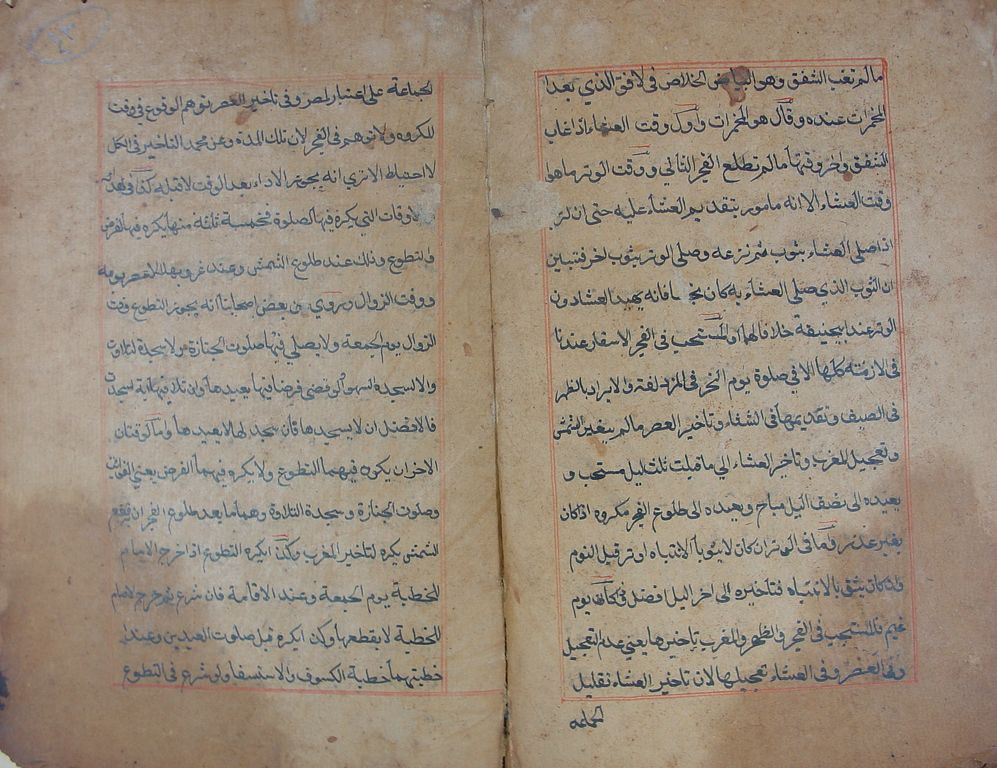 مالم تغب الشفق وهو البياض الخلاص فى لافق الذي بعدا
لحمرات عنده وقال هو الحمرات واول وقت العشاء اذا غاب
الشفق واخر وقتها مالم تطلع الفجر الثانى ووقت الوتر ما هو
وقت العشاء الا انه مامور بتقديم العشاء عليه حتى ان
اذا صلى العشاء بثوب ثم نزعه وصلى الوتر بثوب اخر فتبين
ان الثوب الذي صلى العشاء به كان نجسا فانه يعيد العشاء دون
الوتر عند ابيحنيفة خلافا لهما والمستحب فى الفجر الاسفار عندنا
فى الازمنة كلها الا فى صلوة يوم النحر فى المزدلفة والابراد بالظهر
فى الصيف وتقديمها فى الشتاء وتأخير العصر مالم يتغير الشمس
وتعجيل المغرب وتاخر العشاء الى ما قبلت ثلث ليل مستحب و
بعيده الى نصف اليل مباح وبعيده الى طلوع الفجر مكروه اذا كان
بغير عذر واما فى الوتر ان كان لا يثق بالانتباه اوتر قبل النوم
وان كان يثق بالانتباه فتأخيره الى اخر اليل افضل كان يوم
غيم فالمستحب فى الفجر والظهر والمغرب تاخيرها يعنى عدم التعجيل
وفى العصر وفى العشاء تعجيلها لان تاخير العشاء تقليل
الجماعة
الجماعة على اعتبار لمطر وفى تاخير العصر توهم الوقوع فى وقت
المكروه ولا توهم فى الفجر لان تلك المدة وعن محمد التاخير فى الكل
لاحتياط الا ترى انه يجوز الاداء بعد الوقت لا قبله كذا فى
الاوقات التى يكره فيها الصلوة فخمسة ثلثه منها يكره فيها الفرض
والتطوع وذلك عند طلوع الشمس وعند غروبها الا عصر يومه
ووقت الزوال وروي عن بعض اصحابنا انه يجوز التطوع وقت
الزوال يوم الجمعة ولا يصلى فيها صلوت الجنازة ولا سجدة لتلاوت
ولا سجدة لسهو ولو قضى فرضا فيها يعيدها وان تلا فيها اية سجدت
فالافضل ان لا يسجدها فان سجد لها لا يعيدها واما الوقتان
الاخران يكره فيهما التطوع ولا يكره فيهما الفرض يعنى الفوائت
وصلوت الجنازة وسجدة التلاوة وهما ما بعد طلوع الفجر ان
الشمس يكره لتاخير المغرب وكذا يكره التطوع اذا خرج الامام
للخطبة يوم الجمعة وعند الاقامة فان شرع ثم خرج لامام
للخطبة لا يقطعها وكذا يكره قبل صلوت العيدين وعند
خطبتهما خطبة الكسوف والاستسقا ولو شرع فى التطوع